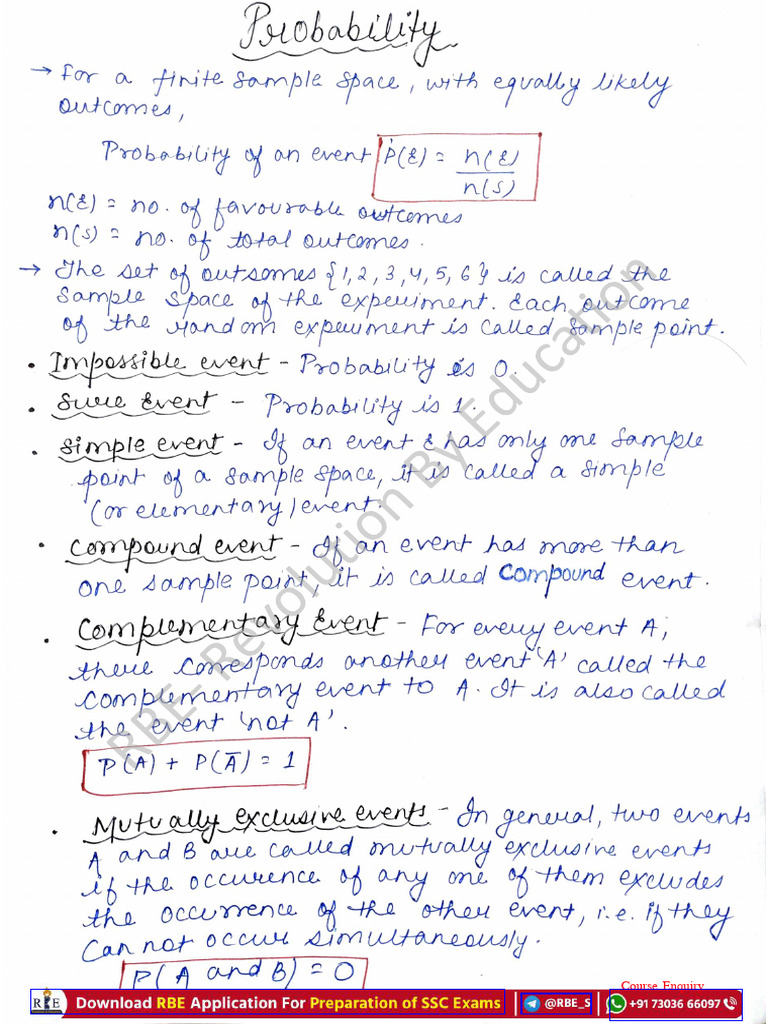 Probability
→ For a finite sample space, with equally likely
outcomes,
Probability of an event P(E) = n(E)
n(S)
n(E) = no. of favourable outcomes
n(s) = no. of total outcomes.
→ The set of outsomes {1,2,3,4,5,6} is called the
sample space of the experiment. Each outcome
of the random experiment is called sample point.
• Impossible event - Probability is 0.
• Sure Event - Probability is 1.
• Simple event - If an event E has only one sample
point of a sample space, it is called a simple
(or elementary) event.
• Compound event - If an event has more than
one sample point, it is called Compound event.
• Complementary Event - For every event A,
there corresponds another event 'A' called the
complementary event to A. It is also called
the event 'not A'.
P(A) + P(A̅) = 1
• Mutually exclusive events - In general, two events
A and B are called mutually exclusive events
if the occurence of any one of them excludes
the occurrence of the other event, i.e. if they
can not occur simultaneously.
P(A and B) = 0
RBE- Revolution By Education
Course Enquiry
RBE Download RBE Application For Preparation of SSC Exams @RBE_S +91 73036 66097